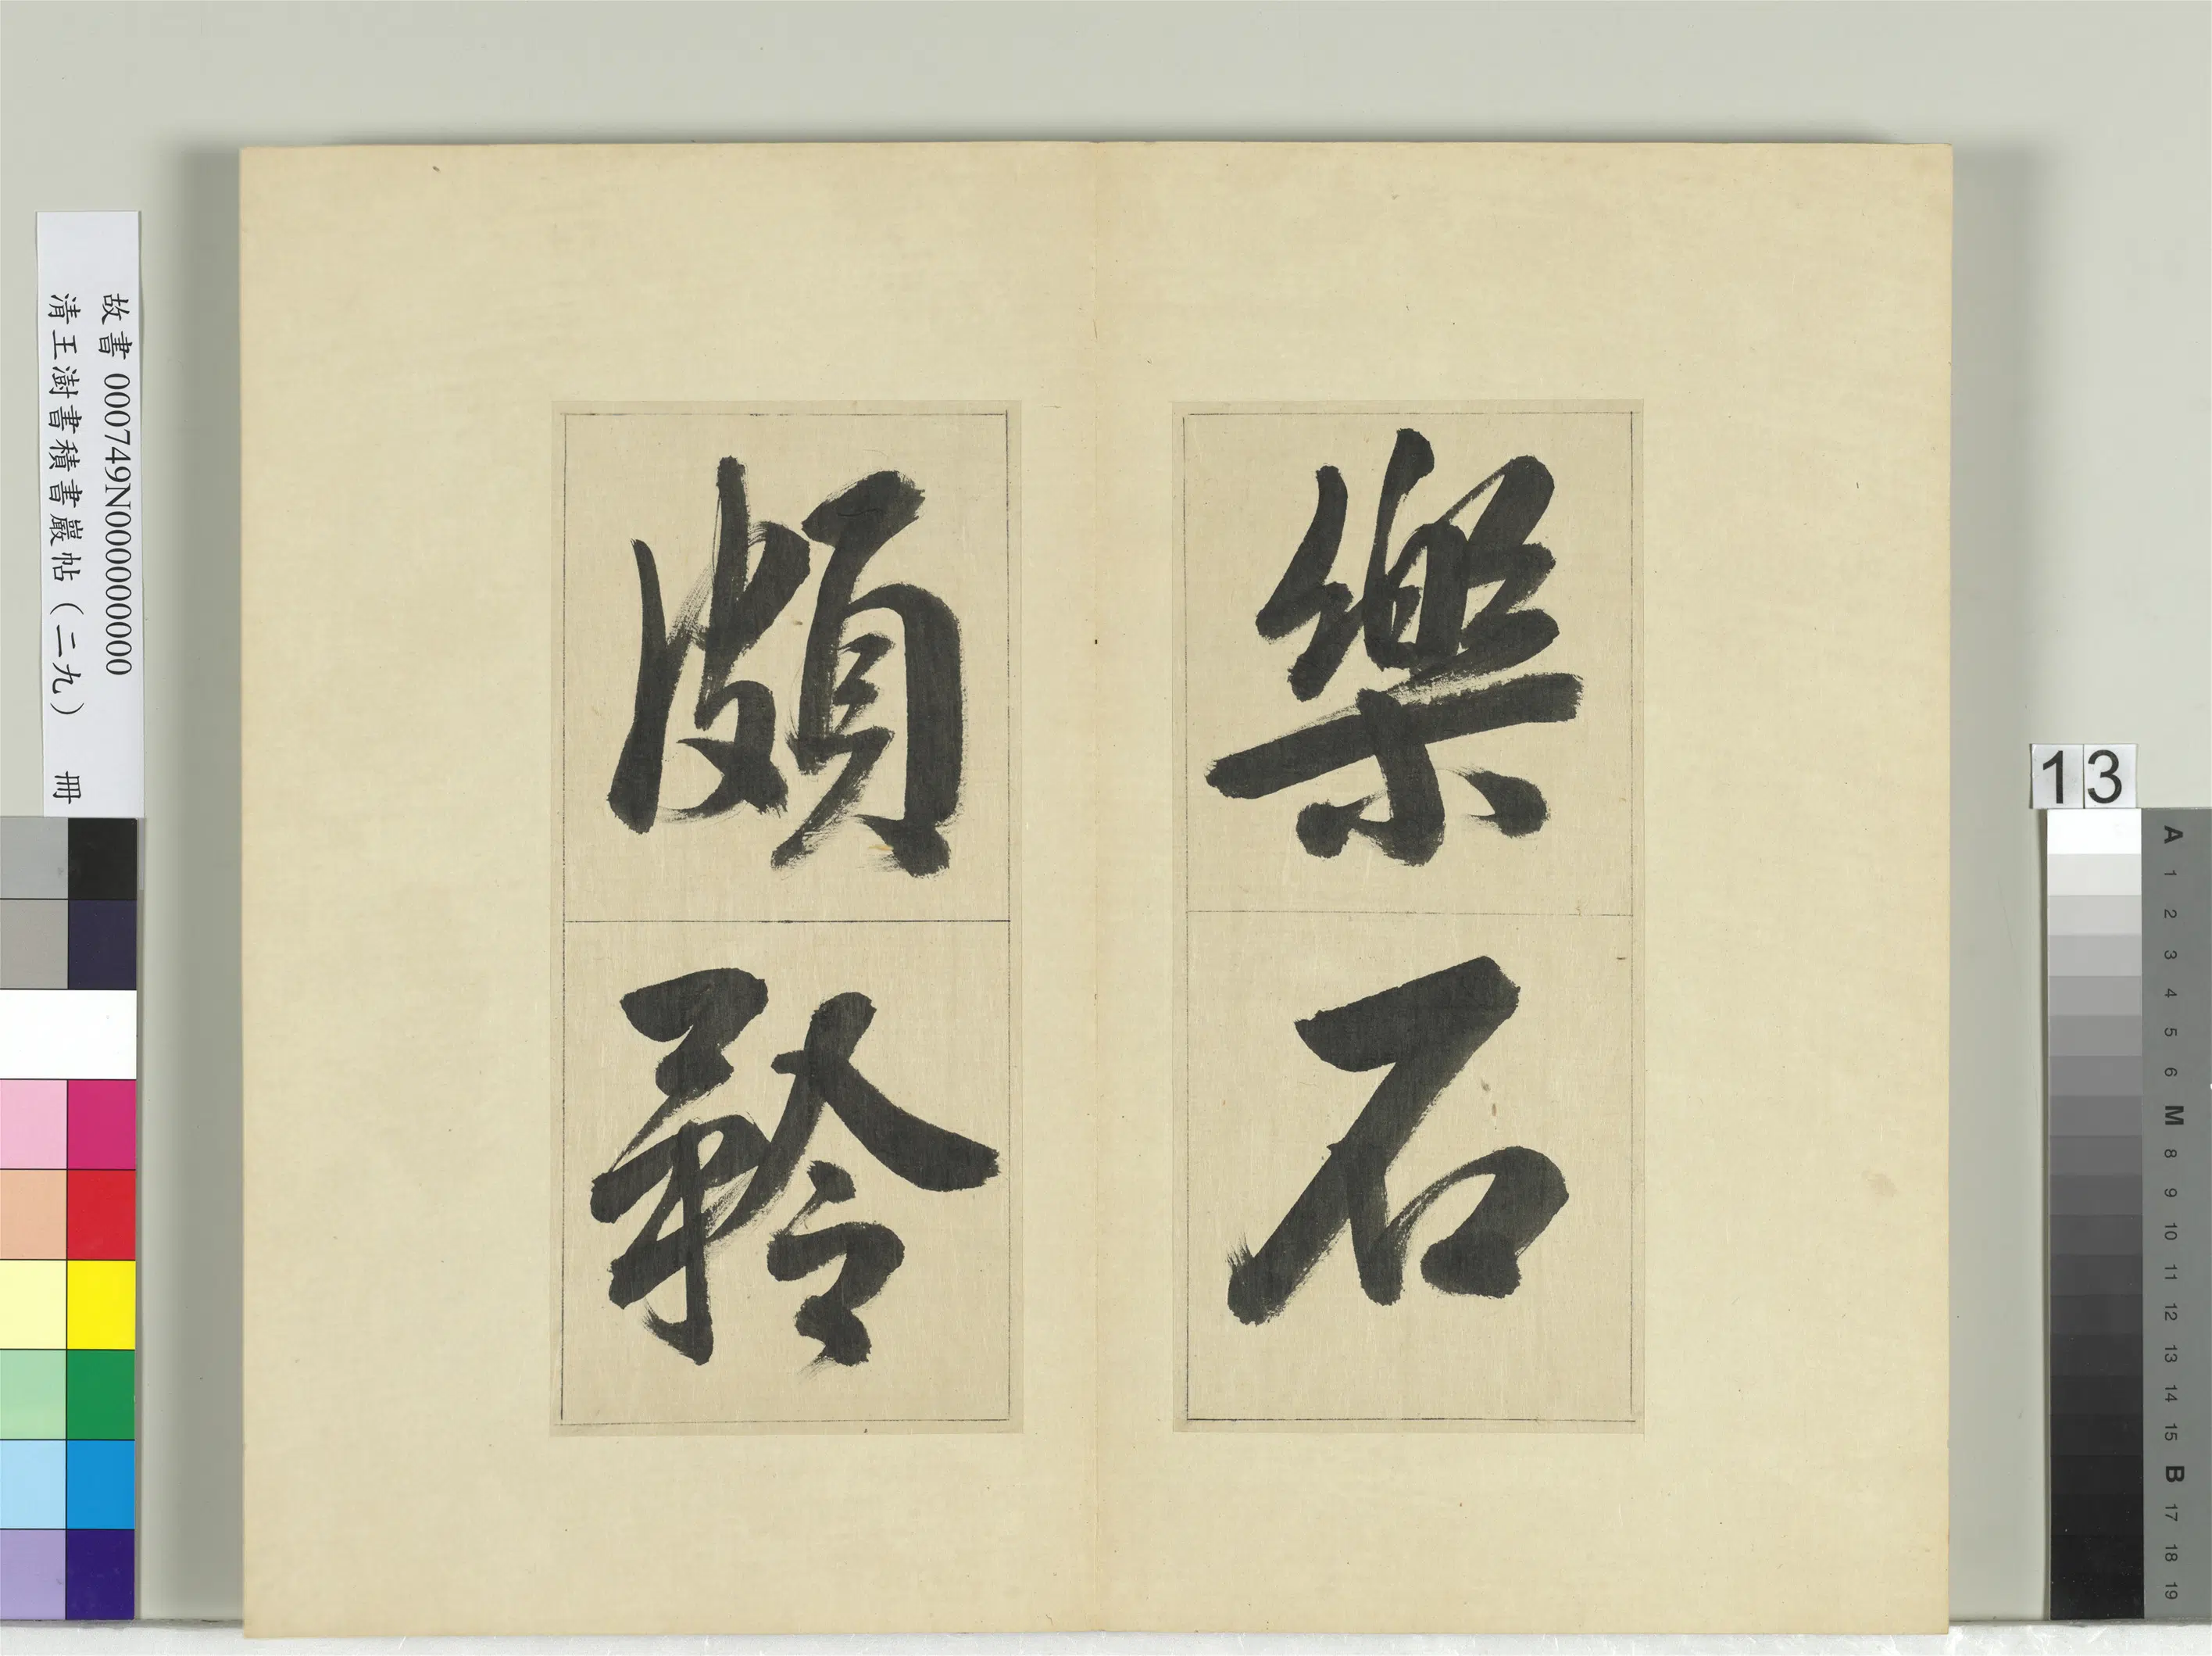 樂石
頗矜
故書 000749N000000000
清王澍書積書巖帖（二九） 冊
13
A 1 2 3 4 5 6 M 8 9 10 11 12 13 14 15 B 17 18 19